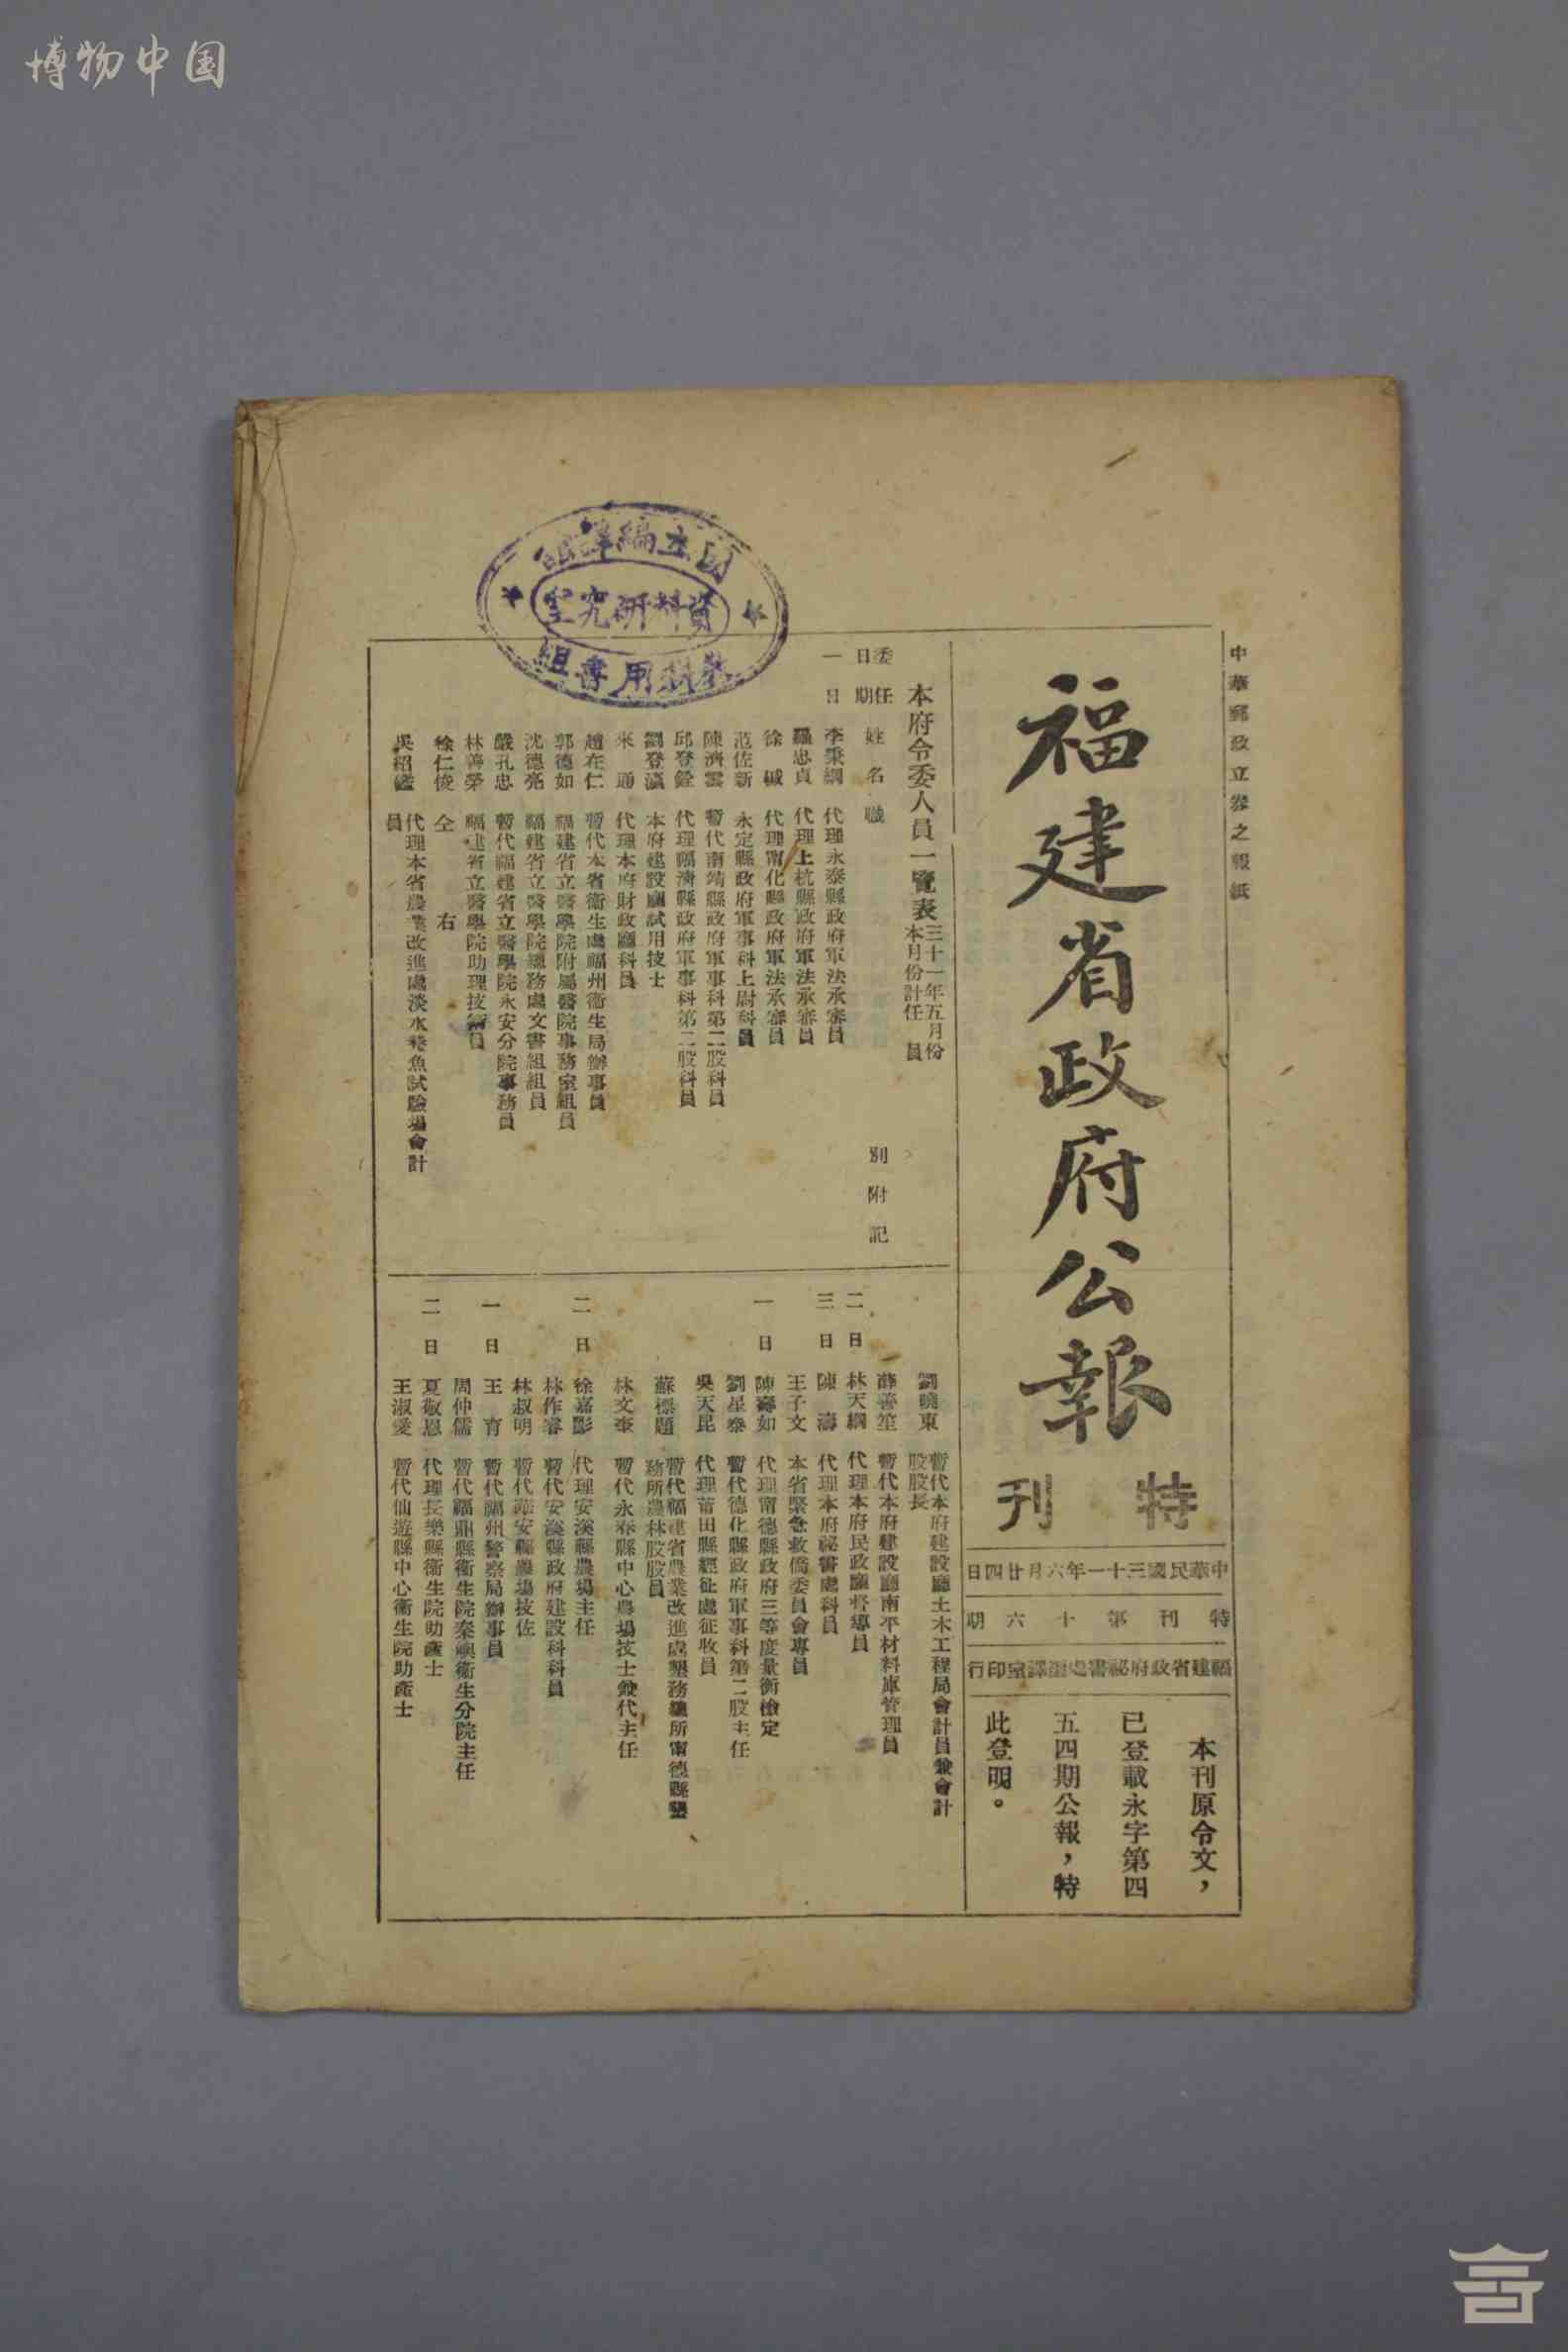 博物中国
中華郵政立券之報紙
福建省政府公報
特刊
中華民國三十一年六月廿四日
特刊第十六期
福建省政府祕書處編譯室印行
本刊原令文，
已登載永字第四
五四期公報，特
此登明。
國立編譯館
資料研究室
教科用書組
本府令委人員一覽表
三十一年五月份
本月份計任 員
委任日期
姓名
職
別
附記
一日
李秉綱 代理永泰縣政府軍法承審員
羅忠貞 代理上杭縣政府軍法承審員
徐 代理甯化縣政府軍法承審員
范佐新 永定縣政府軍事科上尉科員
陳濟雲 暫代南靖縣政府軍事科第二股科員
邱登銓 代理福清縣政府軍事科第二股科員
劉登瀛 本府建設廳試用技士
來通 代理本府財政廳科員
趙在仁 暫代本省衞生處福州衞生局辦事員
郭德如 福建省立醫學院附屬醫院事務室組員
沈德亮 福建省立醫學院總務處文書組組員
嚴孔忠 暫代福建省立醫學院永安分院事務員
林善榮 福建省立醫學院助理技術員
徐仁俊 仝右
吳紹鑑 代理本省農業改進處淡水養魚試驗場會計
員
劉曉東 暫代本府建設廳土木工程局會計員兼會計
股股長
薛善笙 暫代本府建設廳南平材料庫管理員
二日 林天綱 代理本府民政廳督導員
三日 陳濤 代理本府祕書處科員
王子文 本省緊急救僑委員會專員
一日 陳壽如 代理甯德縣政府三等度量衡檢定
劉星泰 暫代德化縣政府軍事科第二股主任
吳天昆 代理莆田縣經征處征收員
蘇標題 暫代福建省農業改進處墾務總所甯德縣墾
務所農林股股員
林文奎 暫代永春縣中心農場技士兼代主任
二日 徐嘉影 代理安溪縣農場主任
林作睿 暫代安溪縣政府建設科科員
林叔明 暫代華安縣農場技佐
一日 王育 暫代福州警察局辦事員
周仲儒 暫代福鼎縣衞生院秦嶼衞生分院主任
二日 夏敬恩 代理長樂縣衞生院助產士
王淑愛 暫代仙遊縣中心衞生院助產士